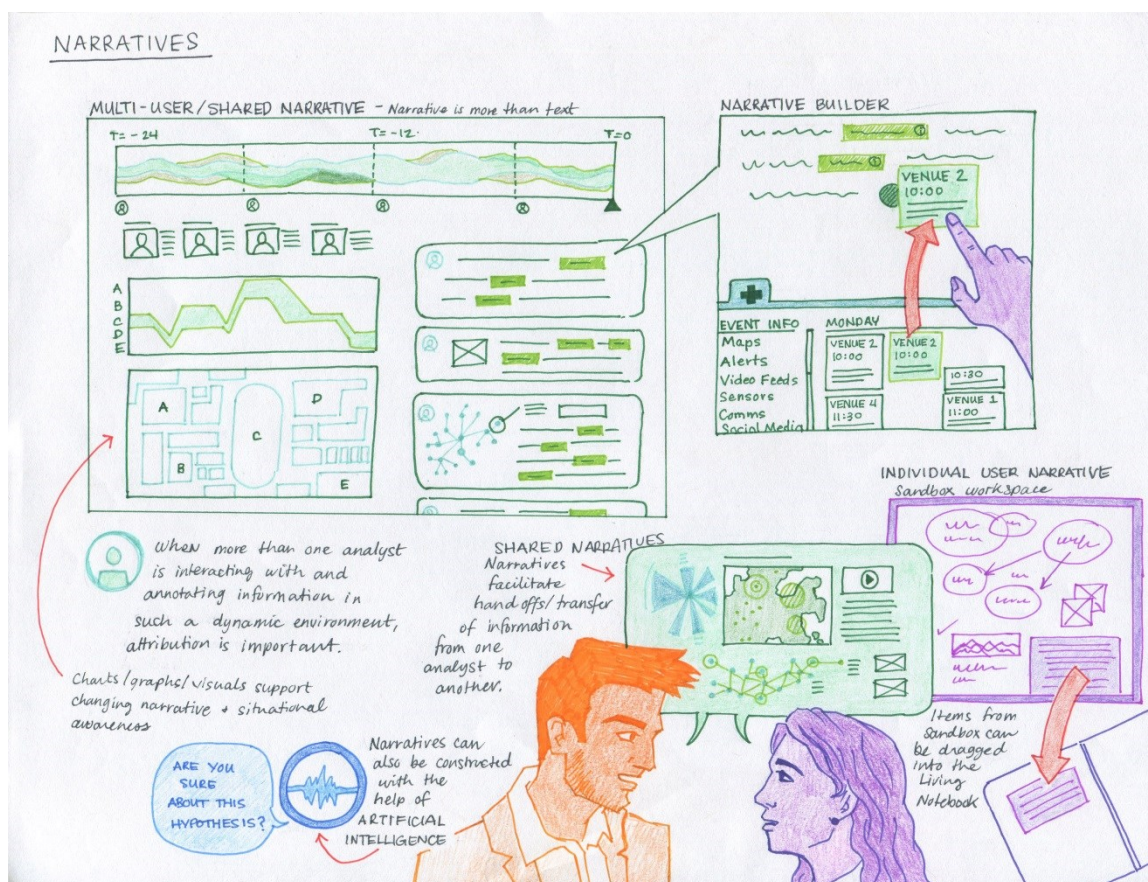 NARRATIVES
MULTI-USER/SHARED NARRATIVE - Narrative is more than text
T= -24
T= -12
T=0
A
B
C
D
E
A
B
C
D
E
NARRATIVE BUILDER
VENUE 2
10:00
EVENT INFO
Maps
Alerts
Video Feeds
Sensors
Comms
Social Media
MONDAY
VENUE 2
10:00
VENUE 2
10:00
10:30
VENUE 4
11:30
VENUE 1
11:00
When more than one analyst
is interacting with and
annotating information in
such a dynamic environment,
attribution is important.
Charts/graphs/visuals support
changing narrative + situational
awareness
SHARED NARRATIVES
Narratives
facilitate
hand offs/transfer
of information
from one
analyst to
another.
INDIVIDUAL USER NARRATIVE
Sandbox workspace
Items from
Sandbox can
be dragged
into the
Living
Notebook
ARE YOU
SURE
ABOUT THIS
HYPOTHESIS?
Narratives can
also be constructed
with the
help of
ARTIFICIAL
INTELLIGENCE